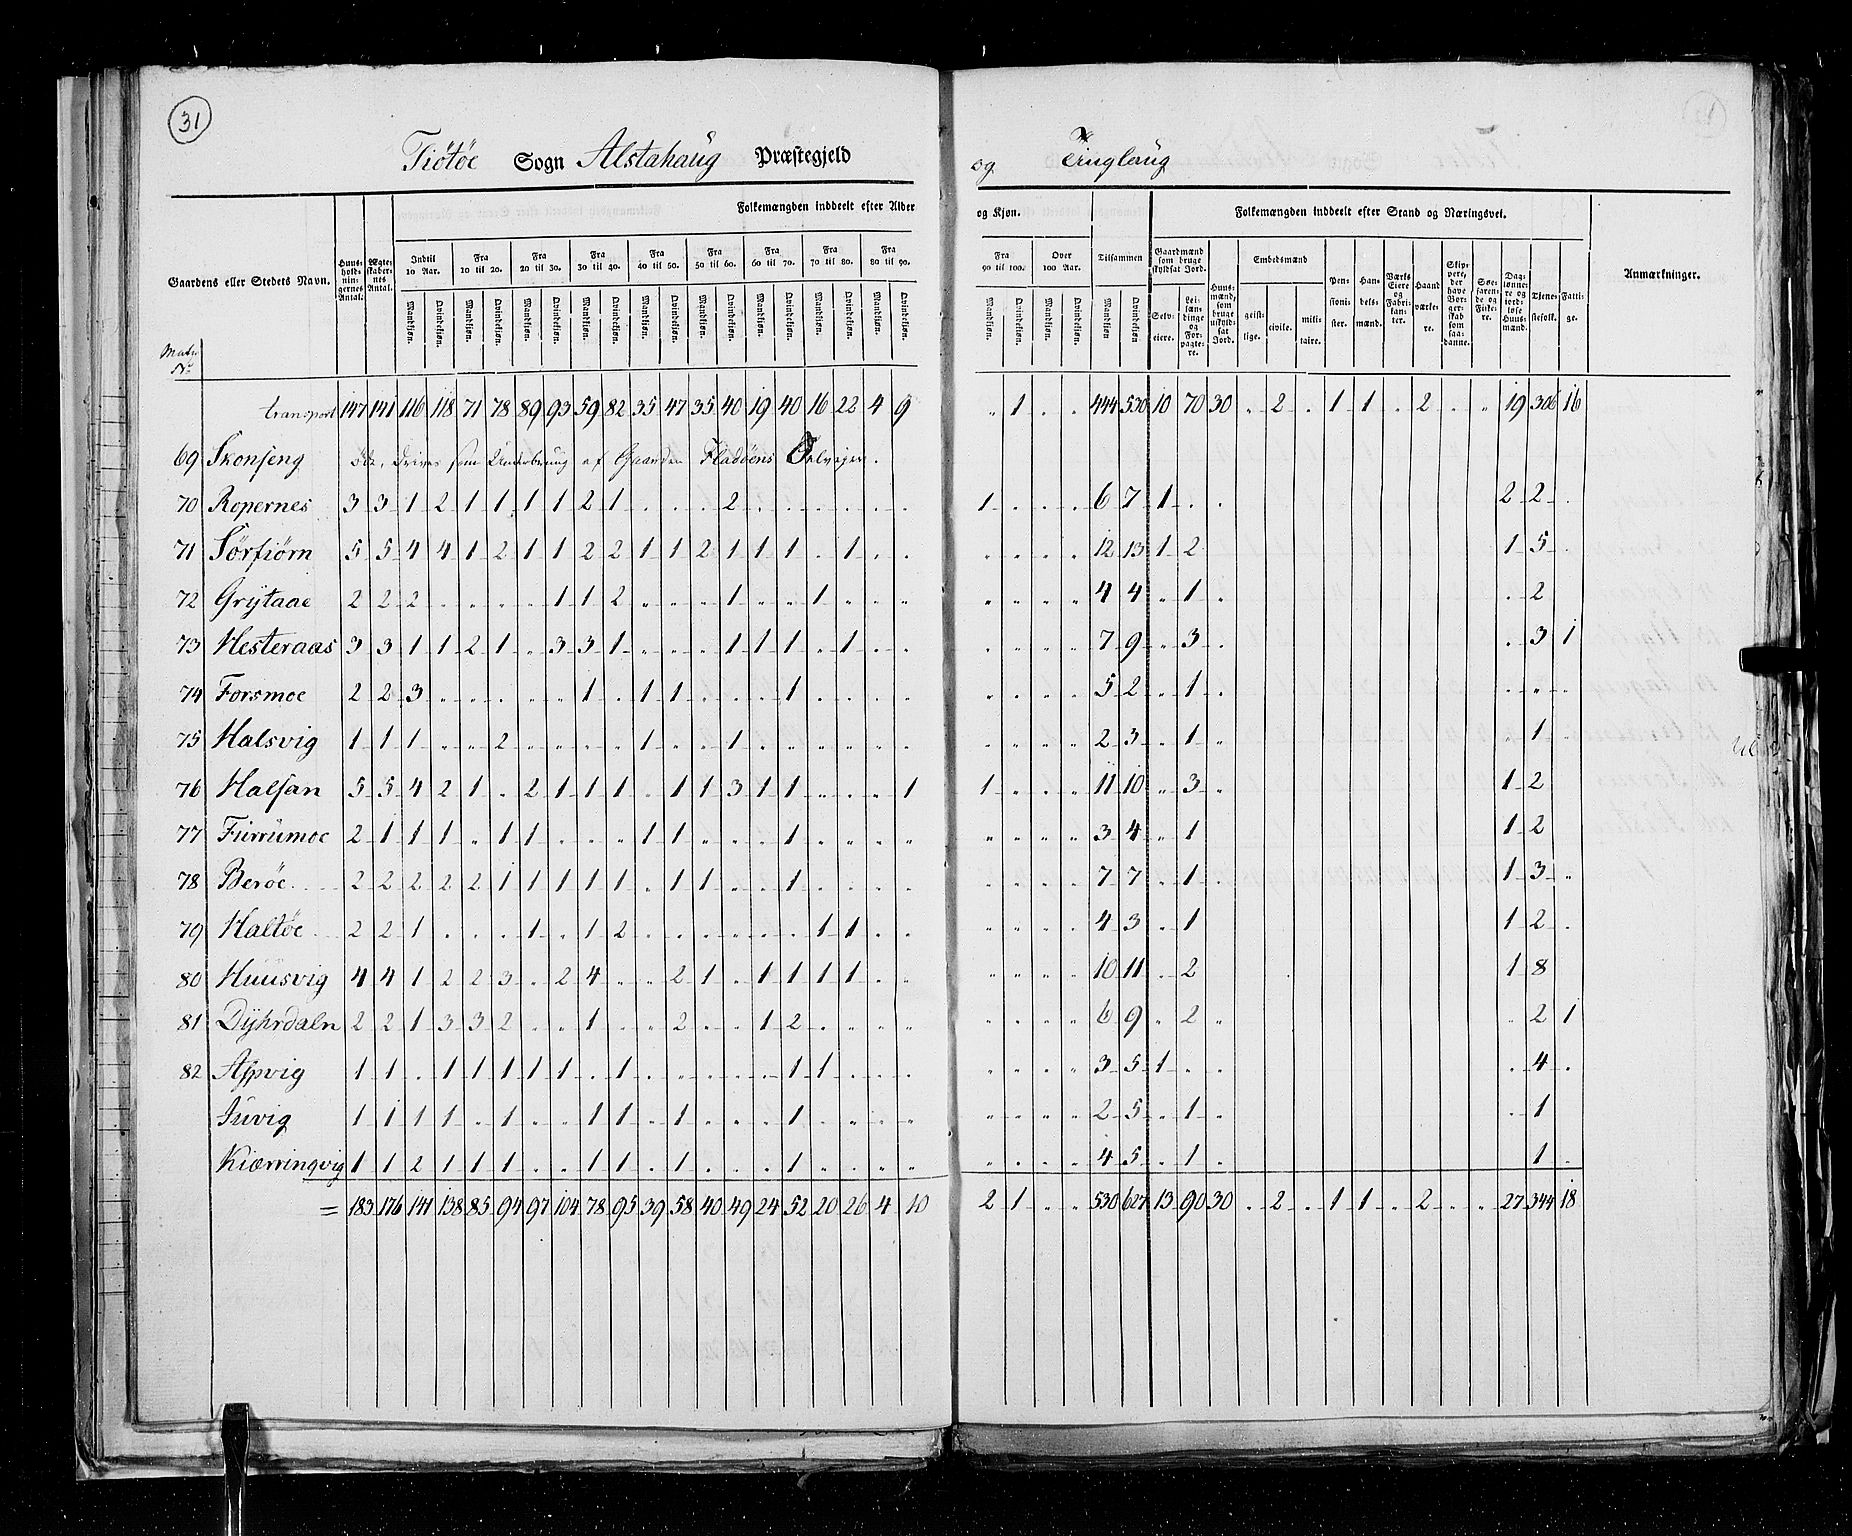 31
Tiötöe Sogn Alstahaug Præstegjeld
og Tinglaug
Folkemængden inddeelt efter Alder
og Kjøn.
Folkemængden inddeelt efter Stand og Næringsvei.
Gaardens eller Stedets Navn.
Huus-holdningernes Antal.
Ægteskabernes Antal.
Indtil 10 Aar. Fra 10 til 20. Fra 20 til 30. Fra 30 til 40. Fra 40 til 50. Fra 50 til 60. Fra 60 til 70. Fra 70 til 80. Fra 80 til 90.
Fra 90 til 100. Over 100 Aar. Tilsammen
Mandkjøn. Qvindekjøn. Mandkjøn. Qvindekjøn. Mandkjøn. Qvindekjøn. Mandkjøn. Qvindekjøn. Mandkjøn. Qvindekjøn. Mandkjøn. Qvindekjøn. Mandkjøn. Qvindekjøn. Mandkjøn. Qvindekjøn. Mandkjøn. Qvindekjøn.
Mandkjøn. Qvindekjøn. Mandkjøn. Qvindekjøn. Mandkjøn Qvindekjøn.
Gaardmænd som bruge skyldsat Jord.
Selveiere.
Leilændinge og Forpagtere.
Huusmænd, som bruge uskyldsat Jord.
Embedsmænd
geistlige. civile. militaire.
Pensionister.
Handelsmænd.
Værks Eiere og Fabrikanter.
Haandværkere.
Skippere, der have Borgerskab som saadanne.
Søefarende og Fiskere.
Daglønnere og jordløse Huusmænd.
Tjenestefolk.
Fattige.
Anmærkninger.
Matr. No
transport 147 141 116 118 71 78 89 93 59 82 35 47 35 40 19 40 16 22 4 9 " 1 . . 444 530 10 70 30 . 2 . 1 1 . 2 . " 19 306 16
69 Skonseng öde, drives som Underbrug af Gaarden Fladøens
70 Ropernes 3 3 1 2 1 1 1 1 2 1 . . . 2 . . . . . . 1 . . . 6 7 1 . . 2 2 .
71 Sørfiörn 5 5 4 4 1 2 1 1 2 2 1 1 2 1 1 1 . 1 . . " . . . 12 13 1 2 1 5 .
72 Grÿtaae 2 2 2 . . . . 1 1 2 . . . 1 . . 1 . . . " . . . 4 4 . 1 . . 2
73 Hesteraas 3 3 1 1 2 1 . 3 3 1 . . . 1 1 1 . 1 . . . . . . 7 9 . 3 . . 3 1
74 Forsmoe 2 2 3 . . . . . 1 . 1 1 . . . 1 . . . . . . . . 5 2 . 1 . . " .
75 Halsvig 1 1 1 . . 2 . . . . 1 . . 1 . . . . . . . . . . 2 3 . 1 " " 1 .
76 Halsan 5 5 4 2 1 . 2 1 1 1 . 1 1 3 1 1 . . . 1 1 . . . 11 10 . 3 . 1 2
77 Furrumoe 2 1 1 1 . 1 1 . . . 1 1 . . . 1 . . . . . . . . 3 4 . 1 1 2
78 Beröe 2 2 2 2 2 1 1 1 1 1 . 1 1 . . 1 . . . . . . . . 7 7 . 1 . 1 3 .
79 Haltöe 2 2 1 . . . 1 . 1 2 . . . . . . 1 1 . . . . . . 4 3 . 1 1 2 .
80 Huusvig 4 4 1 2 2 3 . 2 4 . . 2 1 . 1 1 1 1 . . . . . . 10 11 . 2 1 8
81 Dÿhrdaln 2 2 1 3 3 2 . . 1 . . 2 . . 1 2 . . . . . . . . 6 9 . 2 . . 2 1
82 Aspvig 1 1 . 1 1 1 1 1 . 1 . . . . . 1 1 . . . . . . . 3 5 1 . . . 4 .
Juvig 1 1 1 1 . 1 . . 1 1 . 1 . . . 1 . . . . . . . . 2 5 . 1 . . 1
Kiærringvig 1 1 2 1 1 1 . . 1 1 . 1 . . . 1 . . . . . . . . 4 5 . 1 . 1 .
= 183 176 141 138 85 94 97 104 78 95 39 58 40 49 24 52 20 26 4 10 2 1 . . 530 627 13 90 30 . 2 . 1 1 . 2 . . 27 344 18